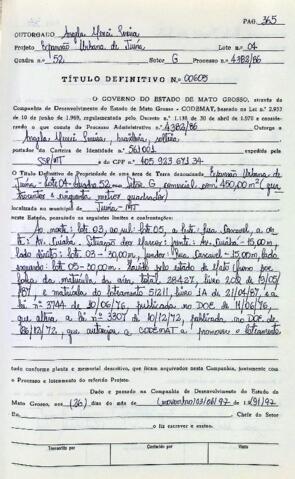 PAG. 365
OUTORGADO Angela Vieira
Projeto Expansão Urbana de Juína Lote nº 04
Quadra nº 52 Setor G Processo nº 4382/86
TÍTULO DEFINITIVO Nº 00605
O GOVERNO DO ESTADO DE MATO GROSSO, através da
Companhia de Desenvolvimento do Estado de Mato Grosso - CODEMAT, baseado na Lei nº 2.933
de 10 de junho de 1969, regulamentado pelo Decreto nº 1.138 de 30 de abril de 1970 e considerando
o que consta do Processo Administrativo nº 4382/86 Outorga a
Angela Vieira, brasileira, solteira
portador da Carteira de Identidade nº 561001 expedida pelo
SSP/MT e do CPF nº 405 923 671 34
o Título Definitivo de Propriedade de uma área de Terra denominada Expansão Urbana de
Juína - Lote 04 - quadra 52 Setor G comercial com 450,00 m² (quatrocentos
e cinquenta metros quadrados)
localizada no município de Juína-MT
neste Estado, possuindo os seguintes limites e confrontações:
Ao norte: lote 03, ao sul: lote 05, a leste: Rua
Av. Cuiabá. frente: Av. Cuiabá - 15,00 m,
lado direito: lote 03 - 30,00 m, fundos: Rua - 15,00 m, lado
esquerdo: lote 05 - 30,00 m. pelo estado de Mato Grosso por
força da matrícula da área total 28427, livro
e matrícula do loteamento 51211, livro 1A de 21/04/87, e a
lei nº 3744 de 10/06/76, publicada no DOE de 11/06/76,
que altera a lei nº 3307 de 10/12/72, publicada no DOE de
26/12/72, que autoriza a CODEMAT a promover o loteamento
tudo conforme planta e memorial descritivo, que ficam arquivados nesta Companhia, juntamente com
o Processo e loteamento do referido Projeto.
Dado e passado na Companhia de Desenvolvimento do Estado de
Mato Grosso, aos (26) dias do mês de
Em Chefe do Setor
o fiz escrever e assino.
Transcrito por Conferido por Visto